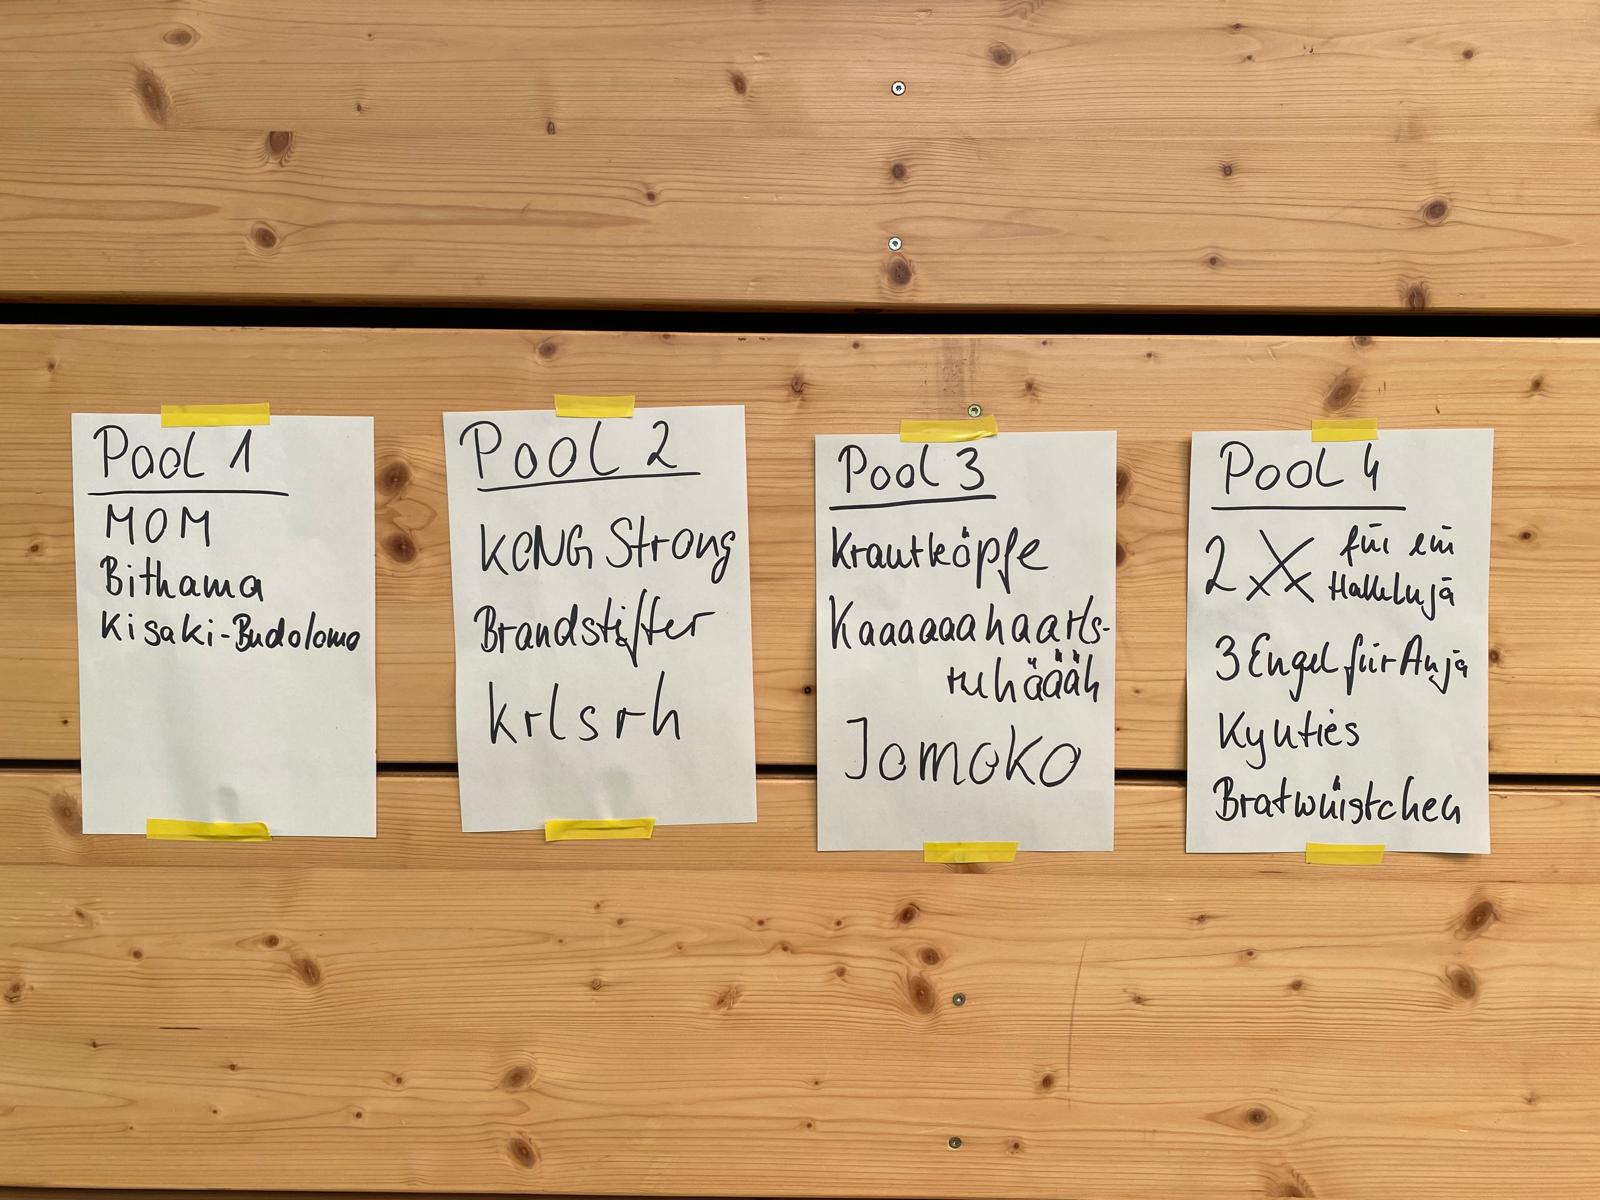 Pool 1
MOM
Bithama
Kisaki-Budolomo
Pool 2
KONG Strong
Brandstifter
krlsrh
Pool 3
Krautköpfe
Kaaaaaahaarls-
ruhäääh
Jomoko
Pool 4
2 X für ein
Halleluja
3 Engel für Anja
Kyuties
Bratwürstchen